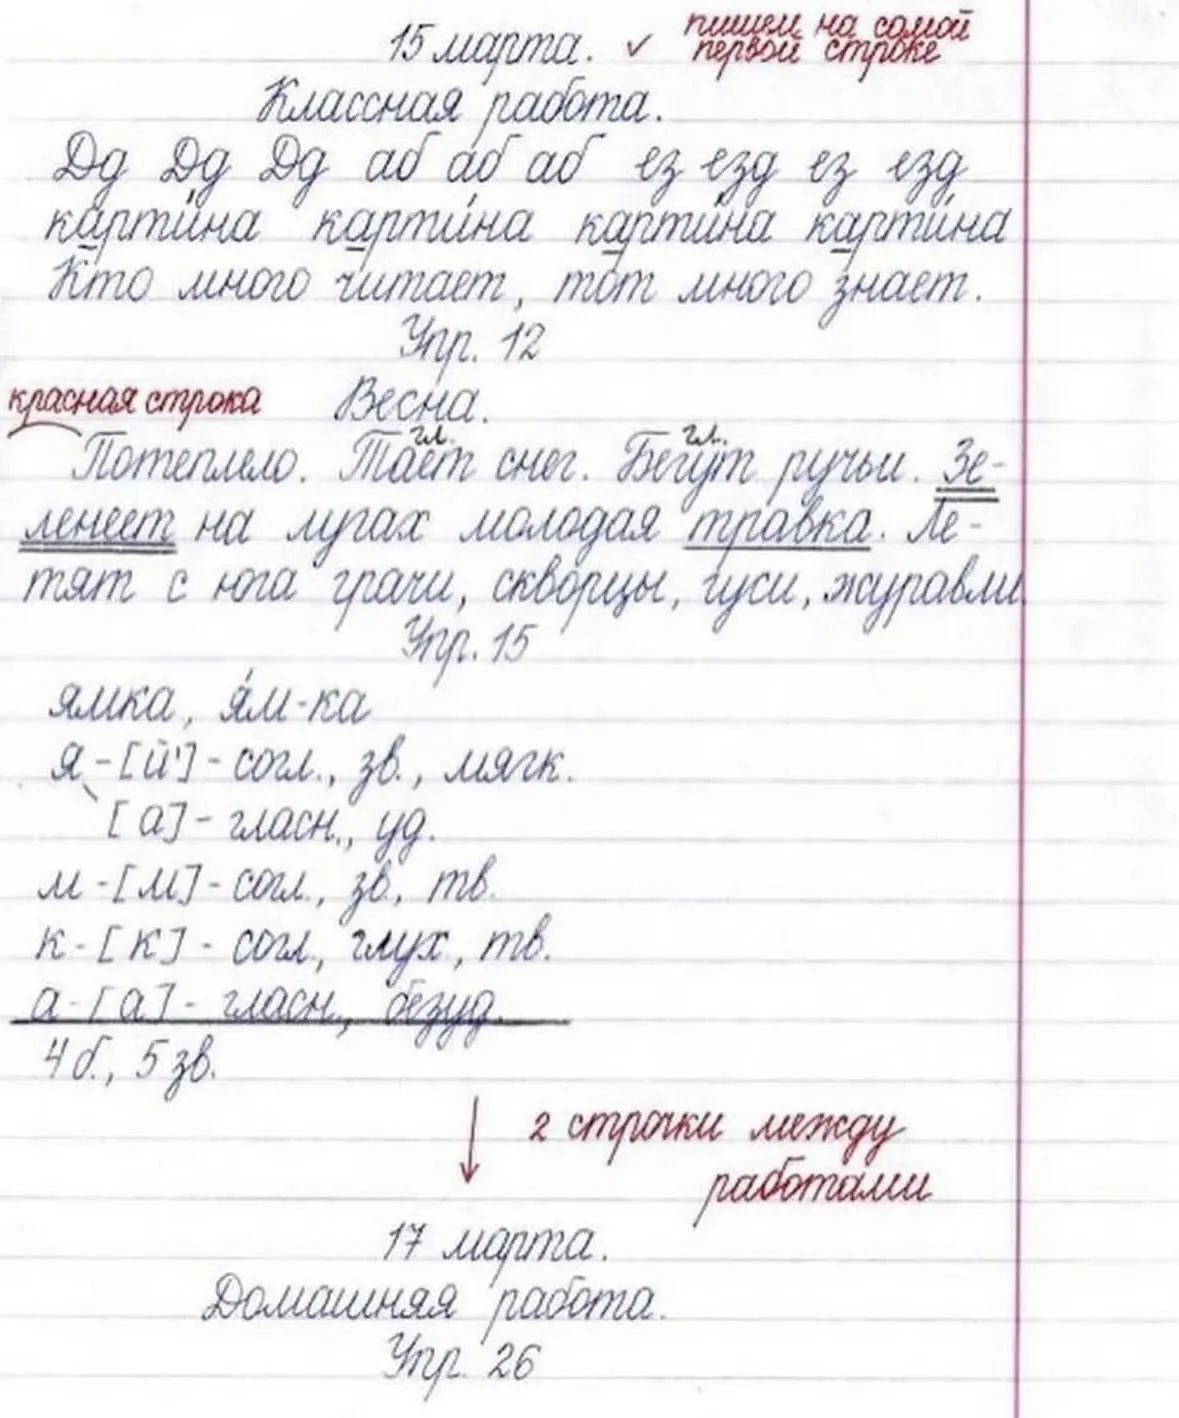 15 марта. ✓ пишем на самой
первой строке
Классная работа.
Дд Дд Дд аб аб аб ез езд ез езд
карти́на карти́на карти́на карти́на
Кто много читает, тот много знает.
Упр. 12
красная строка Весна.
гл. гл.
Потеплело. Тает снег. Бегут ручьи. Зе-
ленеет на лугах молодая травка. Ле-
тят с юга грачи, скворцы, гуси, журавли.
Упр. 15
ямка, я́м-ка
я-[й']-согл., зв., мягк.
[а]-гласн., уд.
м-[м]-согл., зв., тв.
к-[к]-согл., глух., тв.
а-[а]-гласн., безуд.
4 б., 5 зв.
2 строчки между
работами
17 марта.
Домашняя работа.
Упр. 26